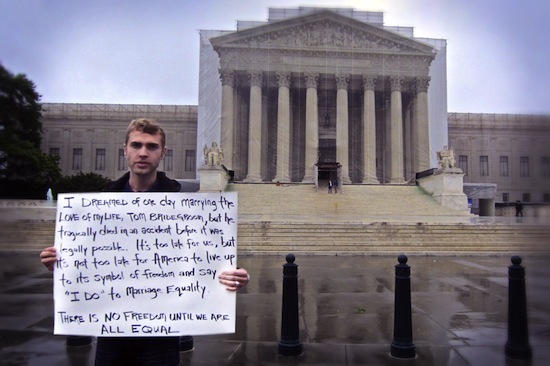 I DREAMED OF ONE DAY MARRYING THE
LOVE OF MY LIFE, TOM BRIDEGROOM, but he
tragically died in an accident before it was
legally possible. It's too late for us, but
it's not too late for America to live up
to its symbol of freedom and say
"I DO" to Marriage Equality.
THERE IS NO FREEDOM UNTIL WE ARE
ALL EQUAL